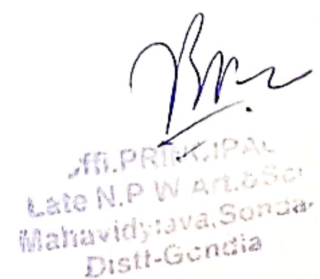 Offi.PRINCIPAL
Late N.P W Art.&Sci
Mahavidyalaya,Sonda-
Distt-Gondia